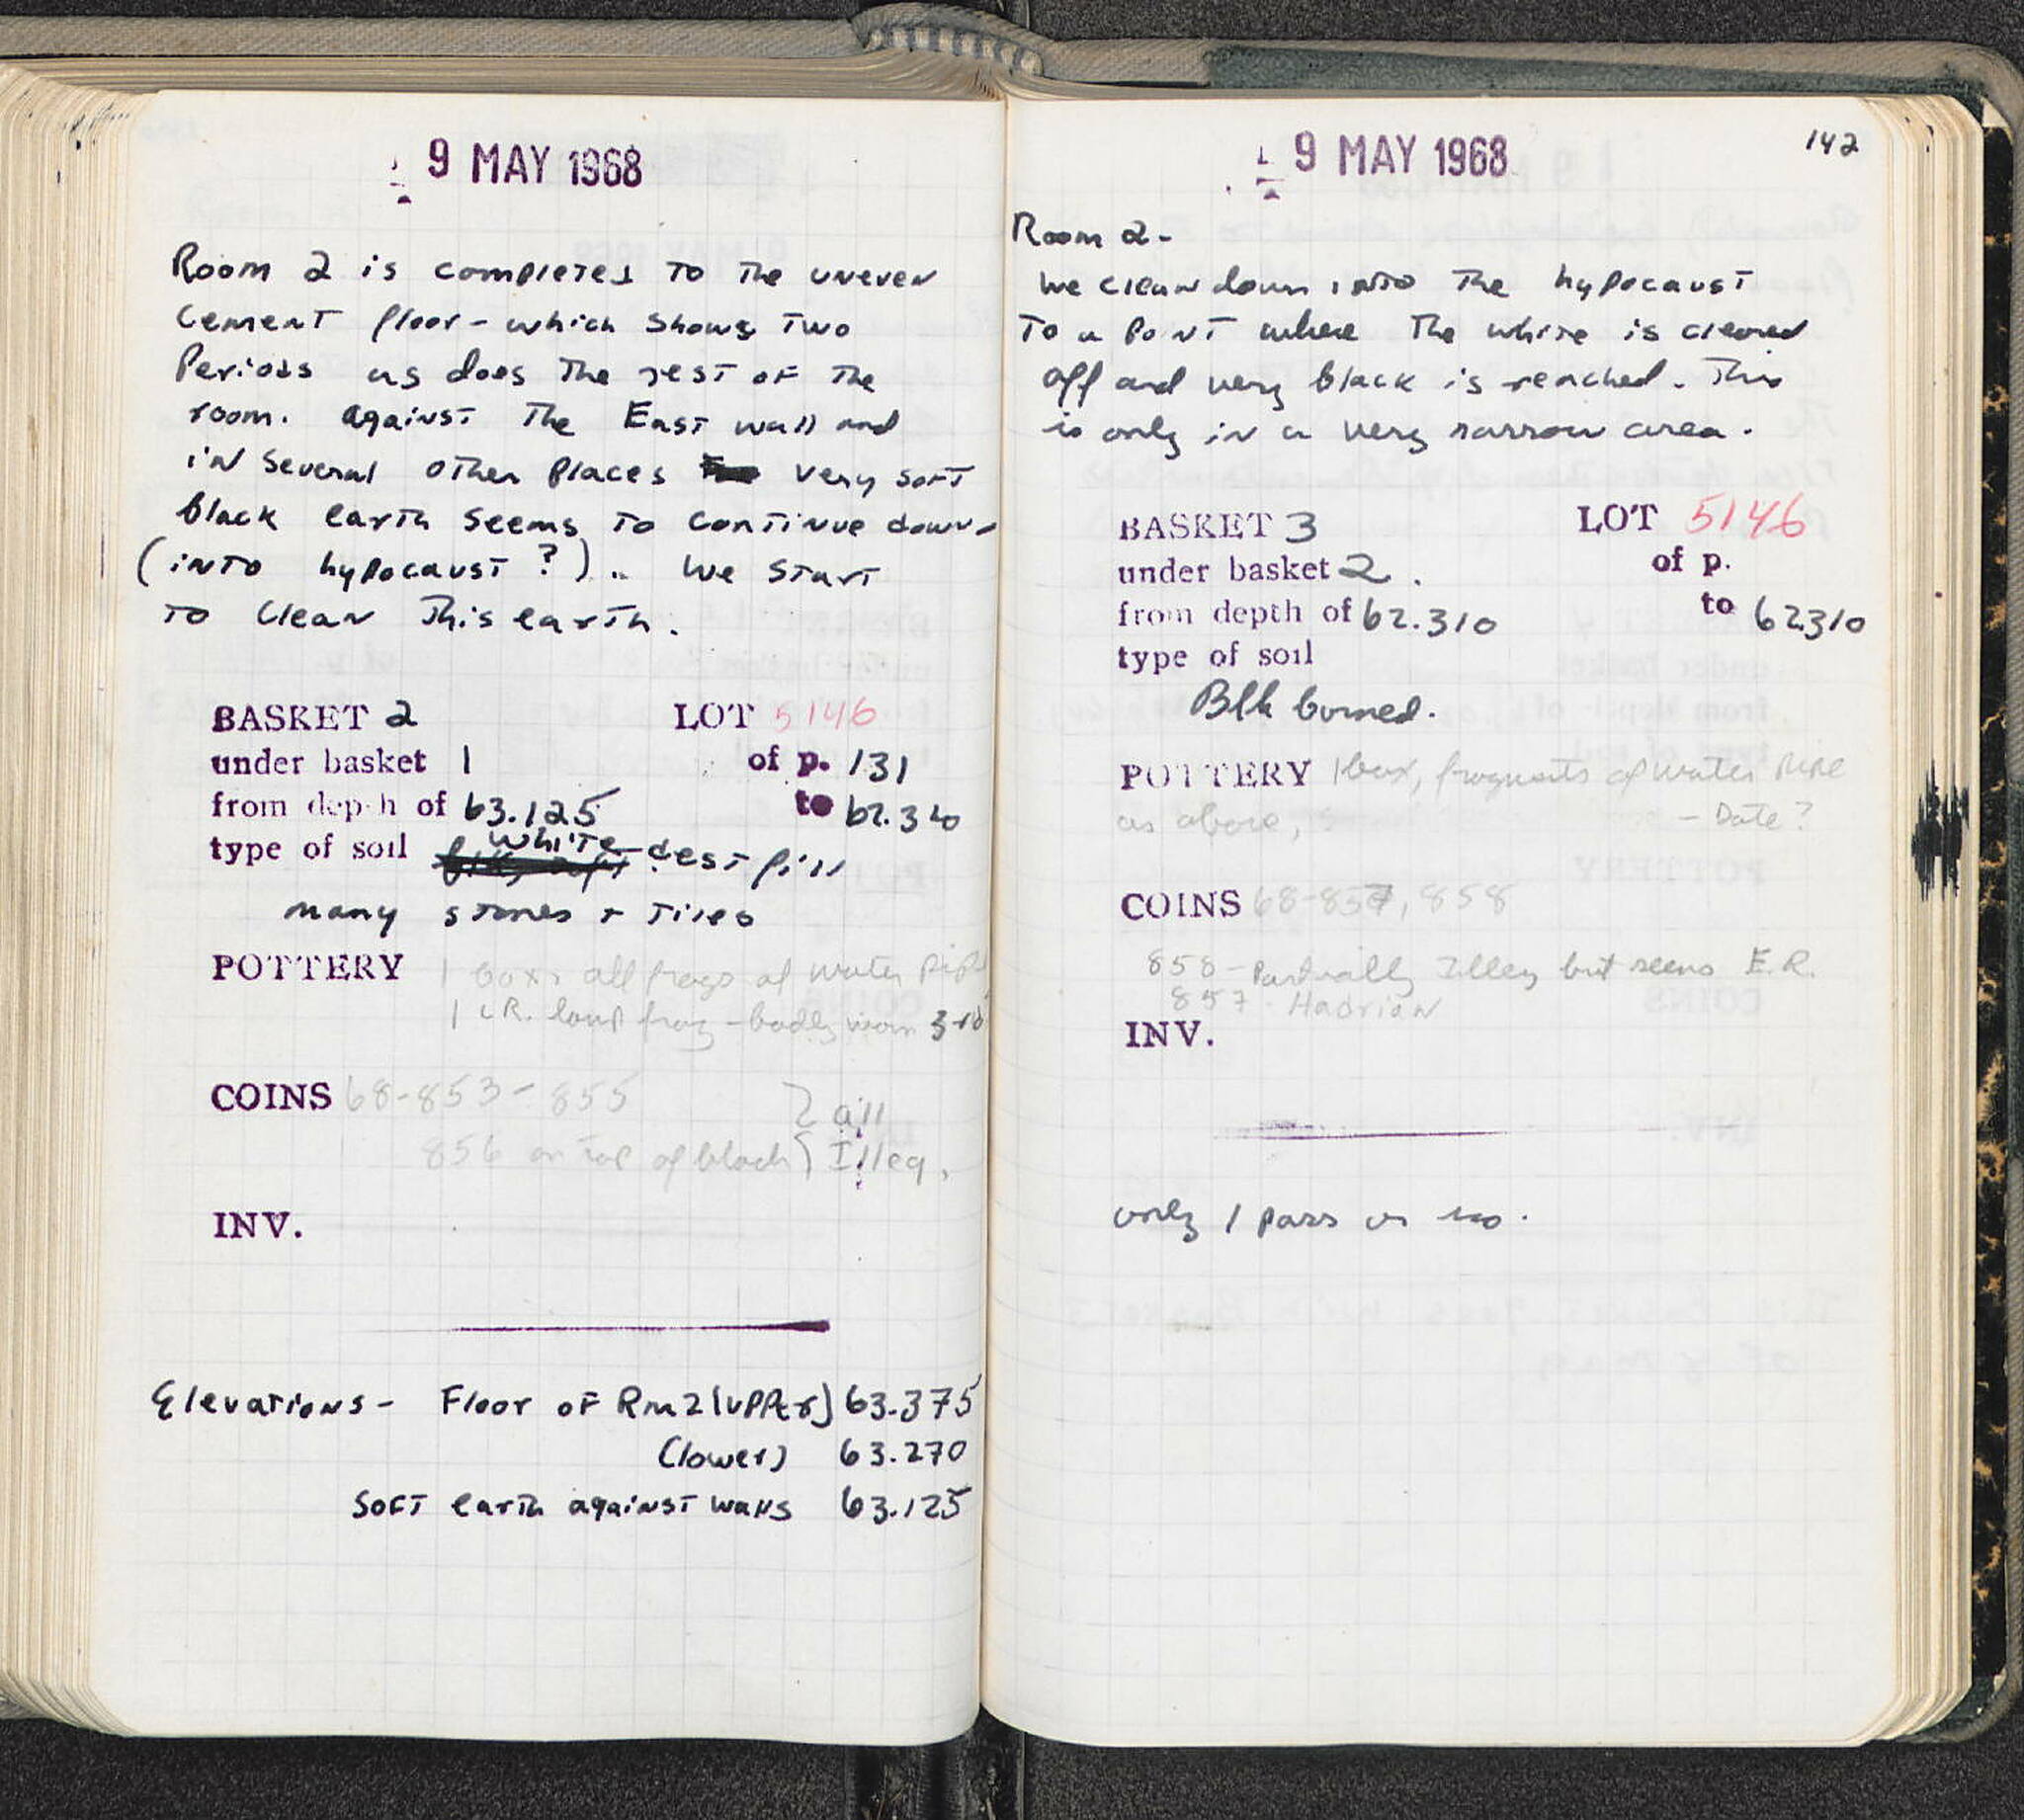 9 MAY 1968
Room 2 is completed to the uneven
cement floor - which shows two
Periods as does the rest of the
room. Against the East wall and
in several other places very soft
black earth seems to continue down -
(into hypocaust?). We start
to clean this earth.
BASKET 2 LOT 5146
under basket 1 of p. 131
from depth of 63.125 to 62.310
type of soil white dest fill
many stones + tiles
POTTERY 1 box, all frags of water pipe
1 LR. lamp frag - badly worn 3-10
COINS 68-853-855 } all
856 on top of black } Illeg.
INV.
Elevations - Floor of Rm 2 (upper) 63.375
(lower) 63.270
Soft earth against walls 63.125
9 MAY 1968
142
Room 2 -
We clean down into the hypocaust
to a point where the white is cleared
off and very black is reached. This
is only in a very narrow area.
BASKET 3 LOT 5146
under basket 2. of p.
from depth of 62.310 to 62.310
type of soil
Blk burned.
POTTERY 1 box, fragments of water pipe
as above, - Date?
COINS 68-857, 858
858 - Partially Illeg but seems E.R.
857 - Hadrian
INV.
only 1 pass or so.